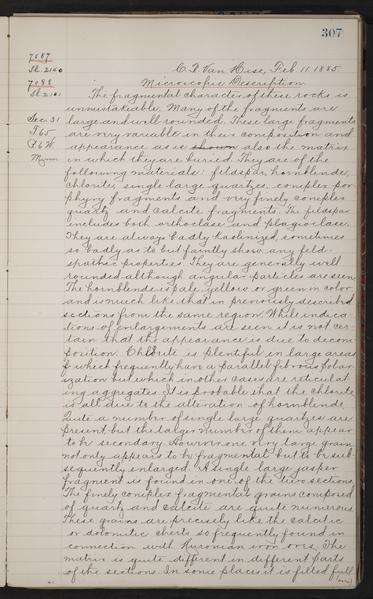 307
7087
Sl. 2140
7088
Sl 2141
Sec. 31
T65
R6W
Minn
C. R. Van Hise, Feb. 11. 1885.
Microscopic Description
The fragmental character of these rocks is
unmistakeable. Many of the fragments are
large and well rounded. These large fragments
are very variable in their composition and
appearance as is shown also the matrix
in which they are buried. They are of the
following materials: feldspar, hornblende,
chlorite, single large quartzes, complex por-
phyry fragments and very finely complex
quartz and calcite fragments. The feldspar
includes both orthoclase and plagioclase.
They are always badly kaolinized, sometimes
so badly as to but faintly show any feld-
spathic properties. They are generally well
rounded although angular particles are seen.
The hornblende is pale yellow or green in color
and is much like that in previously described
sections from the same region. While indica-
tions of enlargements are seen it is not cer-
tain that the appearance is due to decom
position. Chlorite is plentiful in large areas
which frequently have a parallel fibrous polar-
ization but which in other cases are reticulat
ing aggregates. It is probable that the chlorite
is all due to the alteration of hornblende.
Quite a number of single large quartzes are
present but the larger number of them appear
to be secondary. However one very large grain
not only appears to be fragmental but to be sub-
sequently enlarged. A single large jasper
fragment is found in one of the two sections.
The finely complex fragmental grains composed
of quartz and calcite are quite numerous.
These grains are precisely like the calcitic
or dolomitic cherts so frequently found in
connection with Huronian iron ores. The
matrix is quite different in different parts
of the sections. In some places it is filled full